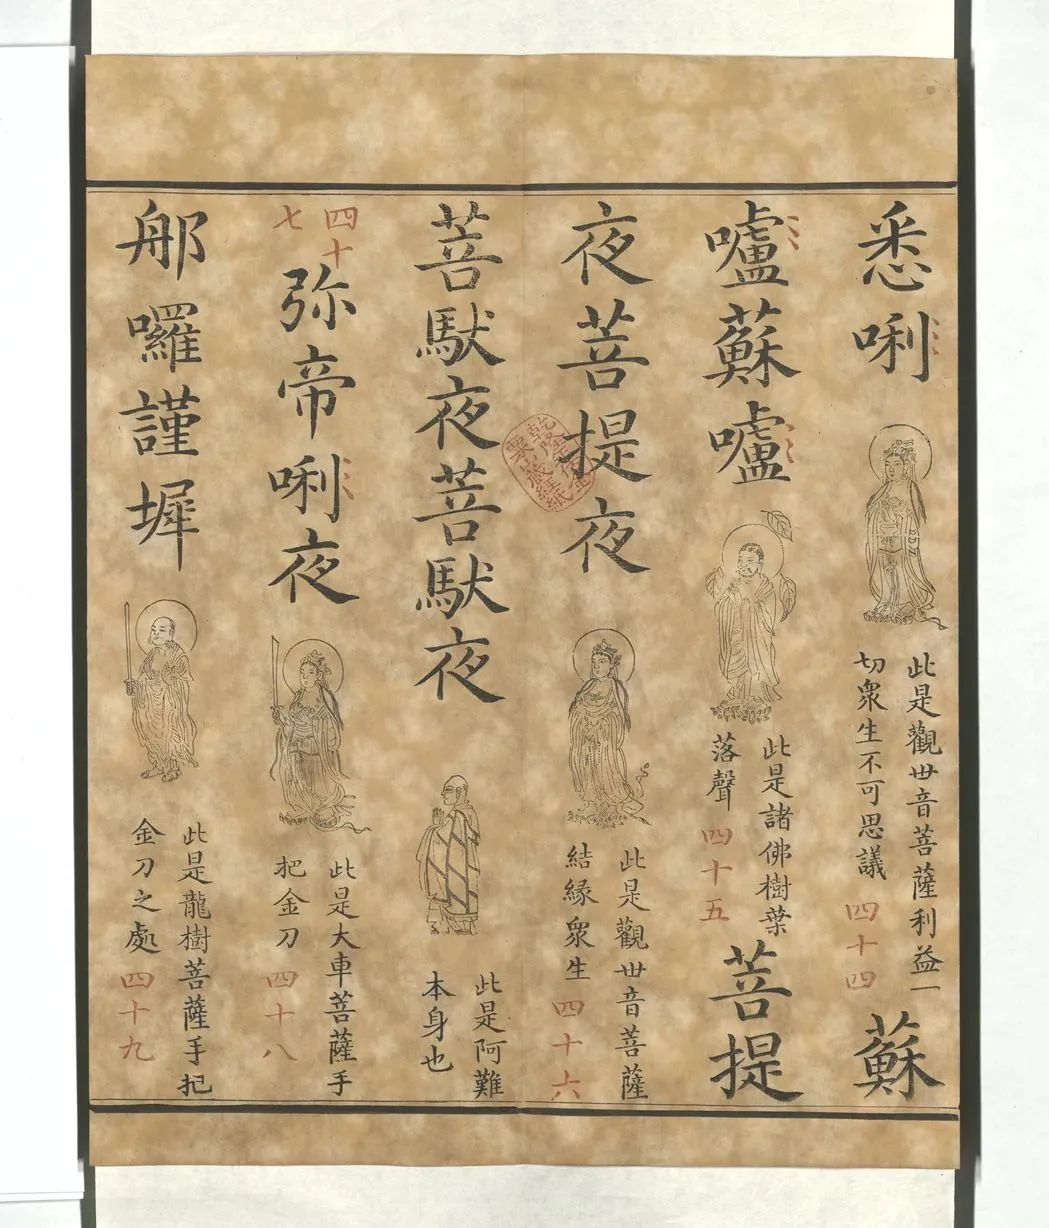 悉唎
此是觀世音菩薩利益一
切衆生不可思議 四十四
蘇
嚧蘇嚧
此是諸佛樹葉
落聲 四十五
菩提
夜菩提夜
此是觀世音菩薩
結緣衆生 四十六
菩馱夜菩馱夜
此是阿難
本身也
四十
七
弥帝唎夜
此是大車菩薩手
把金刀 四十八
那囉謹墀
此是龍樹菩薩手把
金刀之處 四十九
乾隆年仿金粟山藏經紙